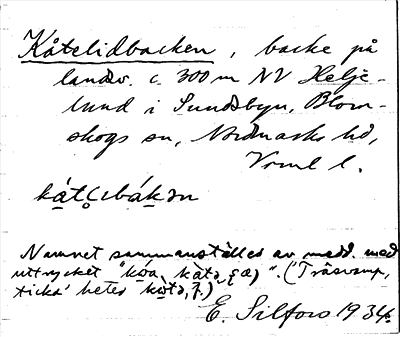 Kåtelidbacken, backe på
landsv. c. 300 m NV Helje-
lund i Sundsbyn, Blom-
skogs sn, Nordmarks hd,
Vrml l.
Namnet sammanställes av medd. med
uttrycket "kòa ('Träsvamp,
ticka' hetes
E. Silfors 1934.